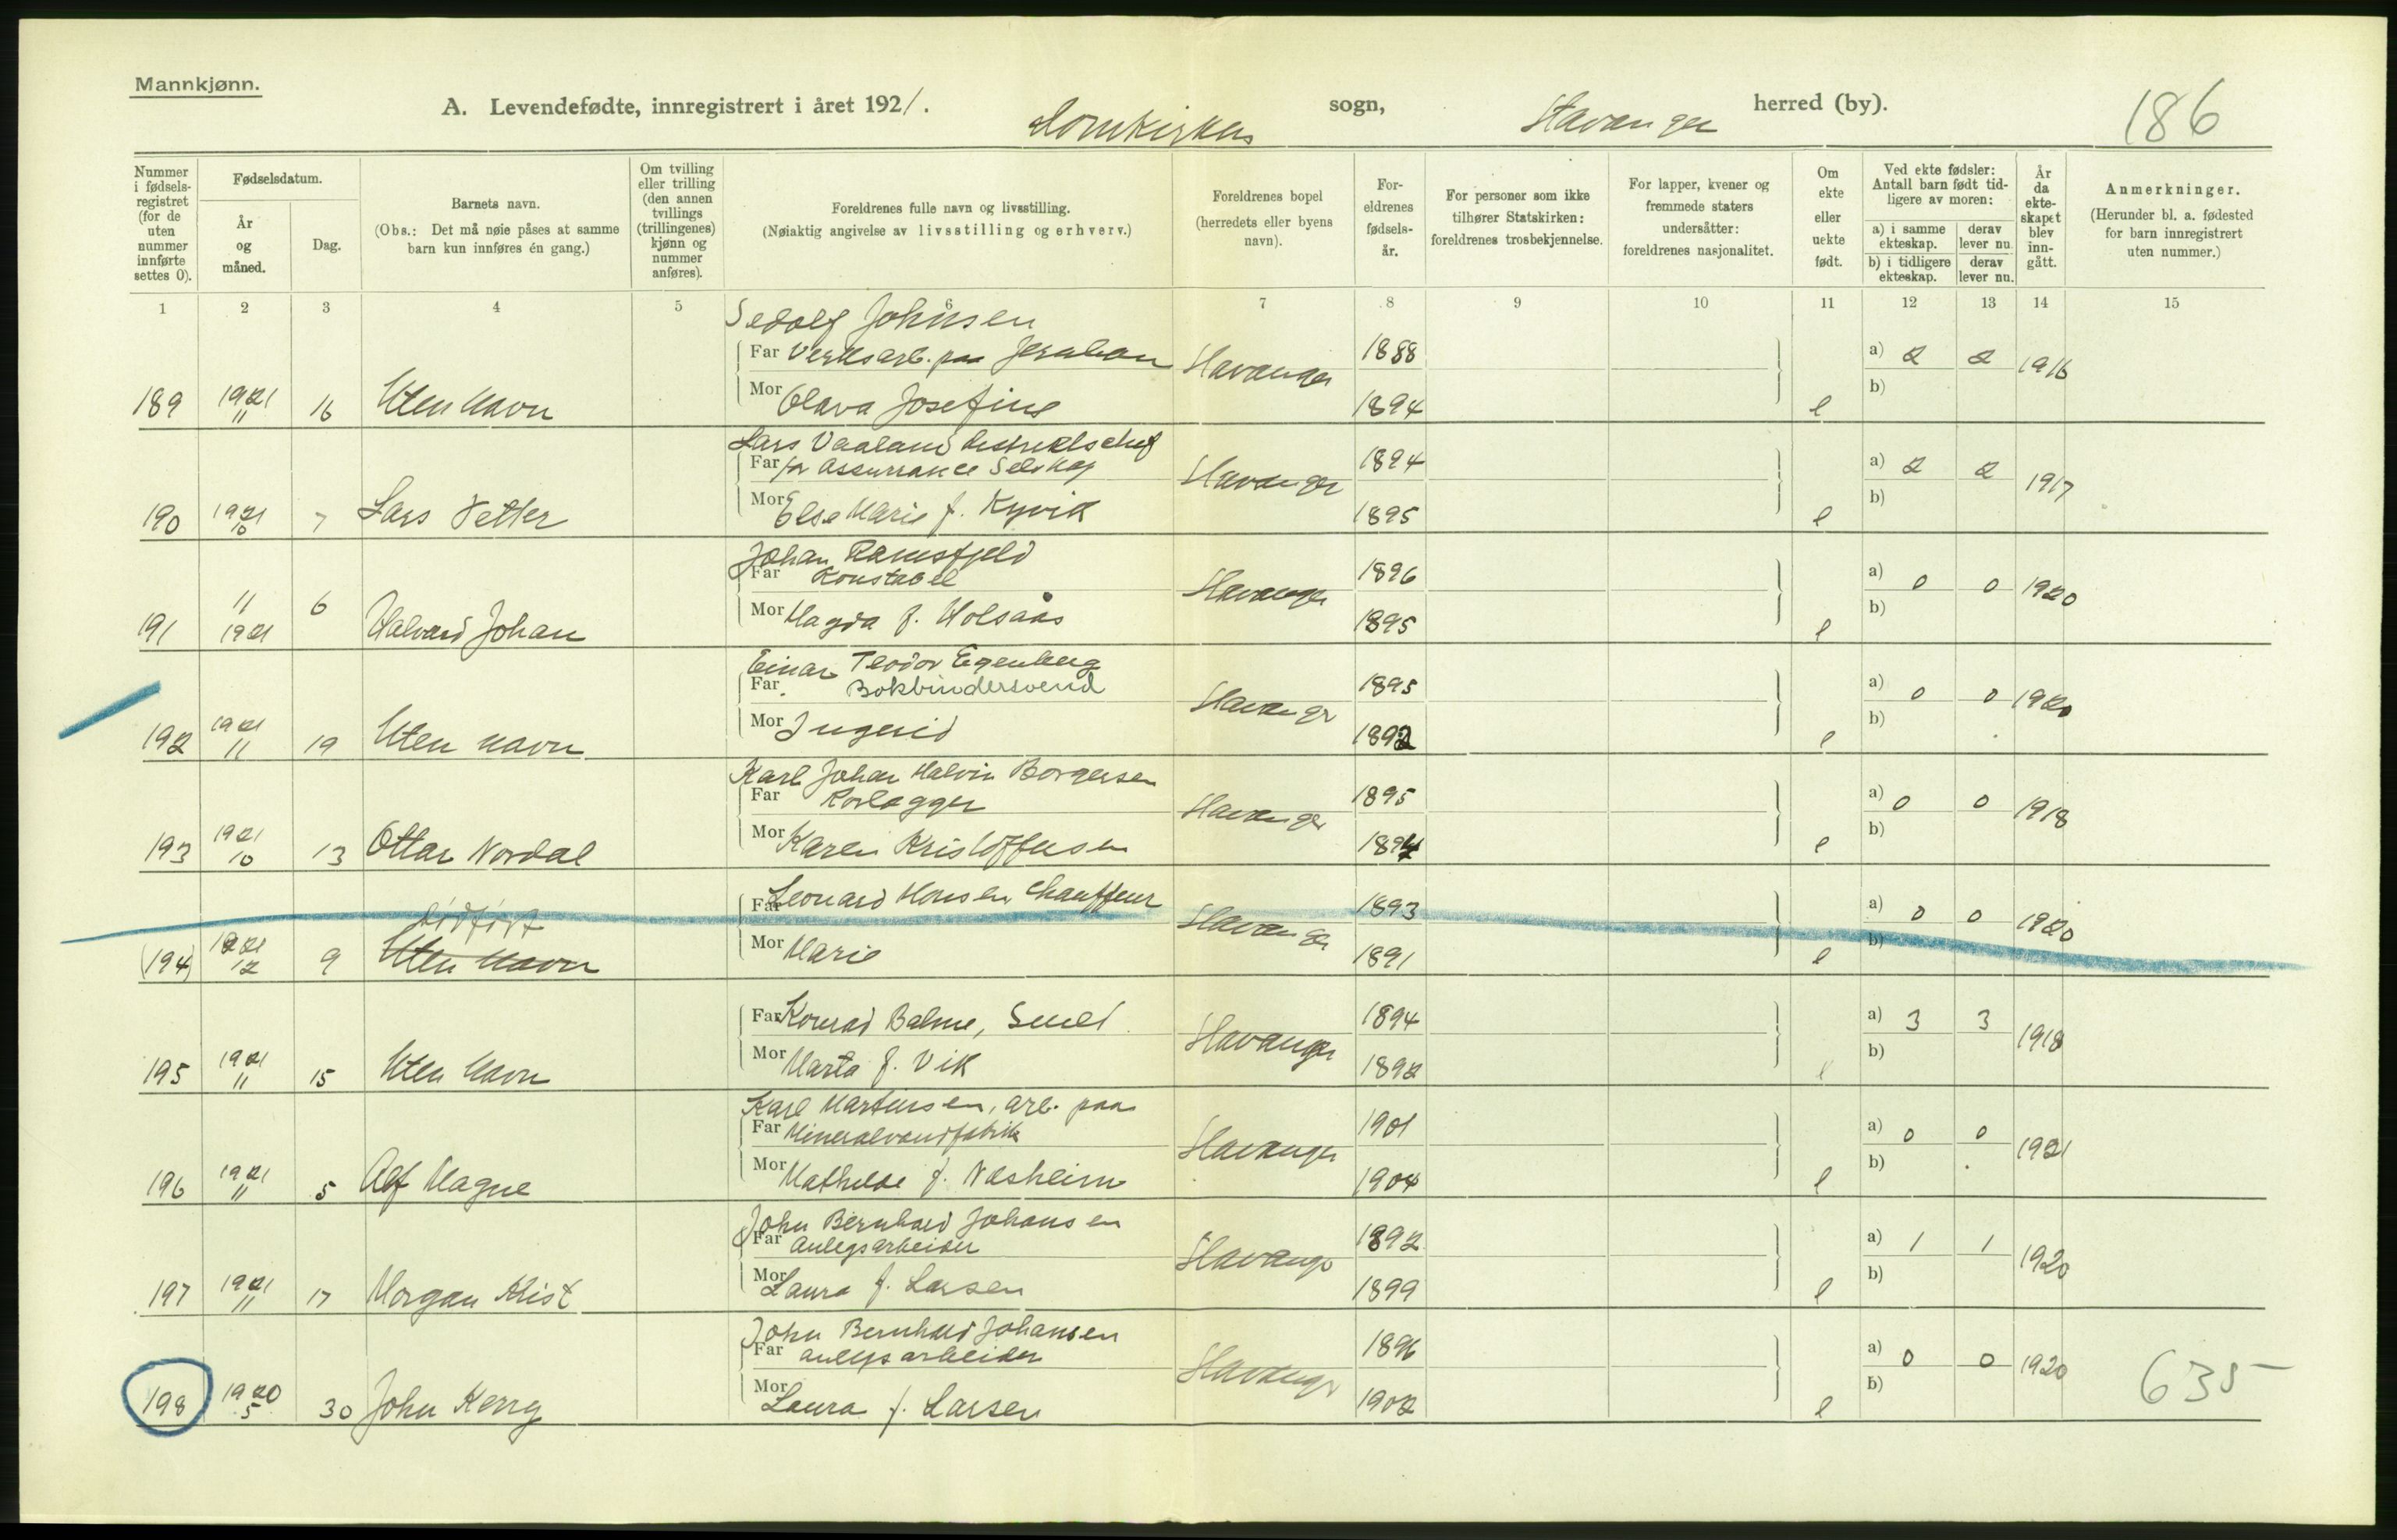 Mannkjønn.
A. Levendefødte, innregistrert i året 1921. Domkirken sogn, Stavanger herred (by). 186
Nummer i fødsels-registret (for de uten nummer innførte settes 0).
Fødselsdatum.
År og måned.
Dag.
Barnets navn.
(Obs.: Det må nøie påses at samme barn kun innføres én gang.)
Om tvilling eller trilling (den annen tvillings (trillingenes) kjønn og nummer anføres).
Foreldrenes fulle navn og livsstilling.
(Nøiaktig angivelse av livsstilling og erhverv.)
Foreldrenes bopel (herredets eller byens navn).
For-eldrenes fødsels-år.
For personer som ikke tilhører Statskirken: foreldrenes trosbekjennelse.
For lapper, kvener og fremmede staters undersåtter: foreldrenes nasjonalitet.
Om ekte eller uekte født.
Ved ekte fødsler: Antall barn født tid-ligere av moren:
a) i samme ekteskap. derav lever nu.
b) i tidligere ekteskap. derav lever nu.
År da ekte-skapet blev inn-gått.
Anmerkninger.
(Herunder bl. a. fødested for barn innregistrert uten nummer.)
1 2 3 4 5 6 7 8 9 10 11 12 13 14 15
Sedolf Johnsen
Far Verksarb. paa Stavanger 1888 a) 2 2 1916
189 1921 11 16 Uten navn Mor Olava Josefine 1894 e b)
Lars Vaaland
Far for Assurance Selskap Stavanger 1894 a) 2 2 1917
190 1921 10 7 Lars Petter Mor Else Marie f. Kyvik 1895 e b)
Johan Ramsfjeld
Far Konstabel Stavanger 1896 a) 0 0 1920
191 11 1921 6 Halvard Johan Mor Magda f. Holsaas 1895 e b)
Einar Teodor Egenberg
Far Bokbindersvend Stavanger 1895 a) 0 0 1920
192 1921 11 19 Uten navn Mor Ingerid 1892 e b)
Karl Johan Halvin Borgersen
Far Rørlægger Stavanger 1895 a) 0 0 1918
193 1921 10 13 Ottar Nordal Mor Karen Kristoffersen 1894 e b)
Far Leonard Hansen Chauffeur Stavanger 1893 a) 0 0 1920
dødfødt
(194) 1921 12 9 Uten navn Mor Marie 1891 e b)
Far Konrad Balme, Smed Stavanger 1894 a) 3 3 1918
195 1921 11 15 Uten navn Mor Marta f. Vik 1892 e b)
Karl Martinsen, arb. paa
Far Mineralvandfabrik Stavanger 1901 a) 0 0 1921
196 1921 11 5 Alf Magne Mor Mathilde f. Næsheim 1904 e b)
John Bernhard Johansen
Far Anlegsarbeider Stavanger 1892 a) 1 1 1920
197 1921 11 17 Morgan Krist Mor Laura f. Larsen 1899 e b)
John Bernhard Johansen
Far anlegsarbeider Stavanger 1896 a) 0 0 1920
198 1920 5 30 John Kerry Mor Laura f. Larsen 1902 e b) 635